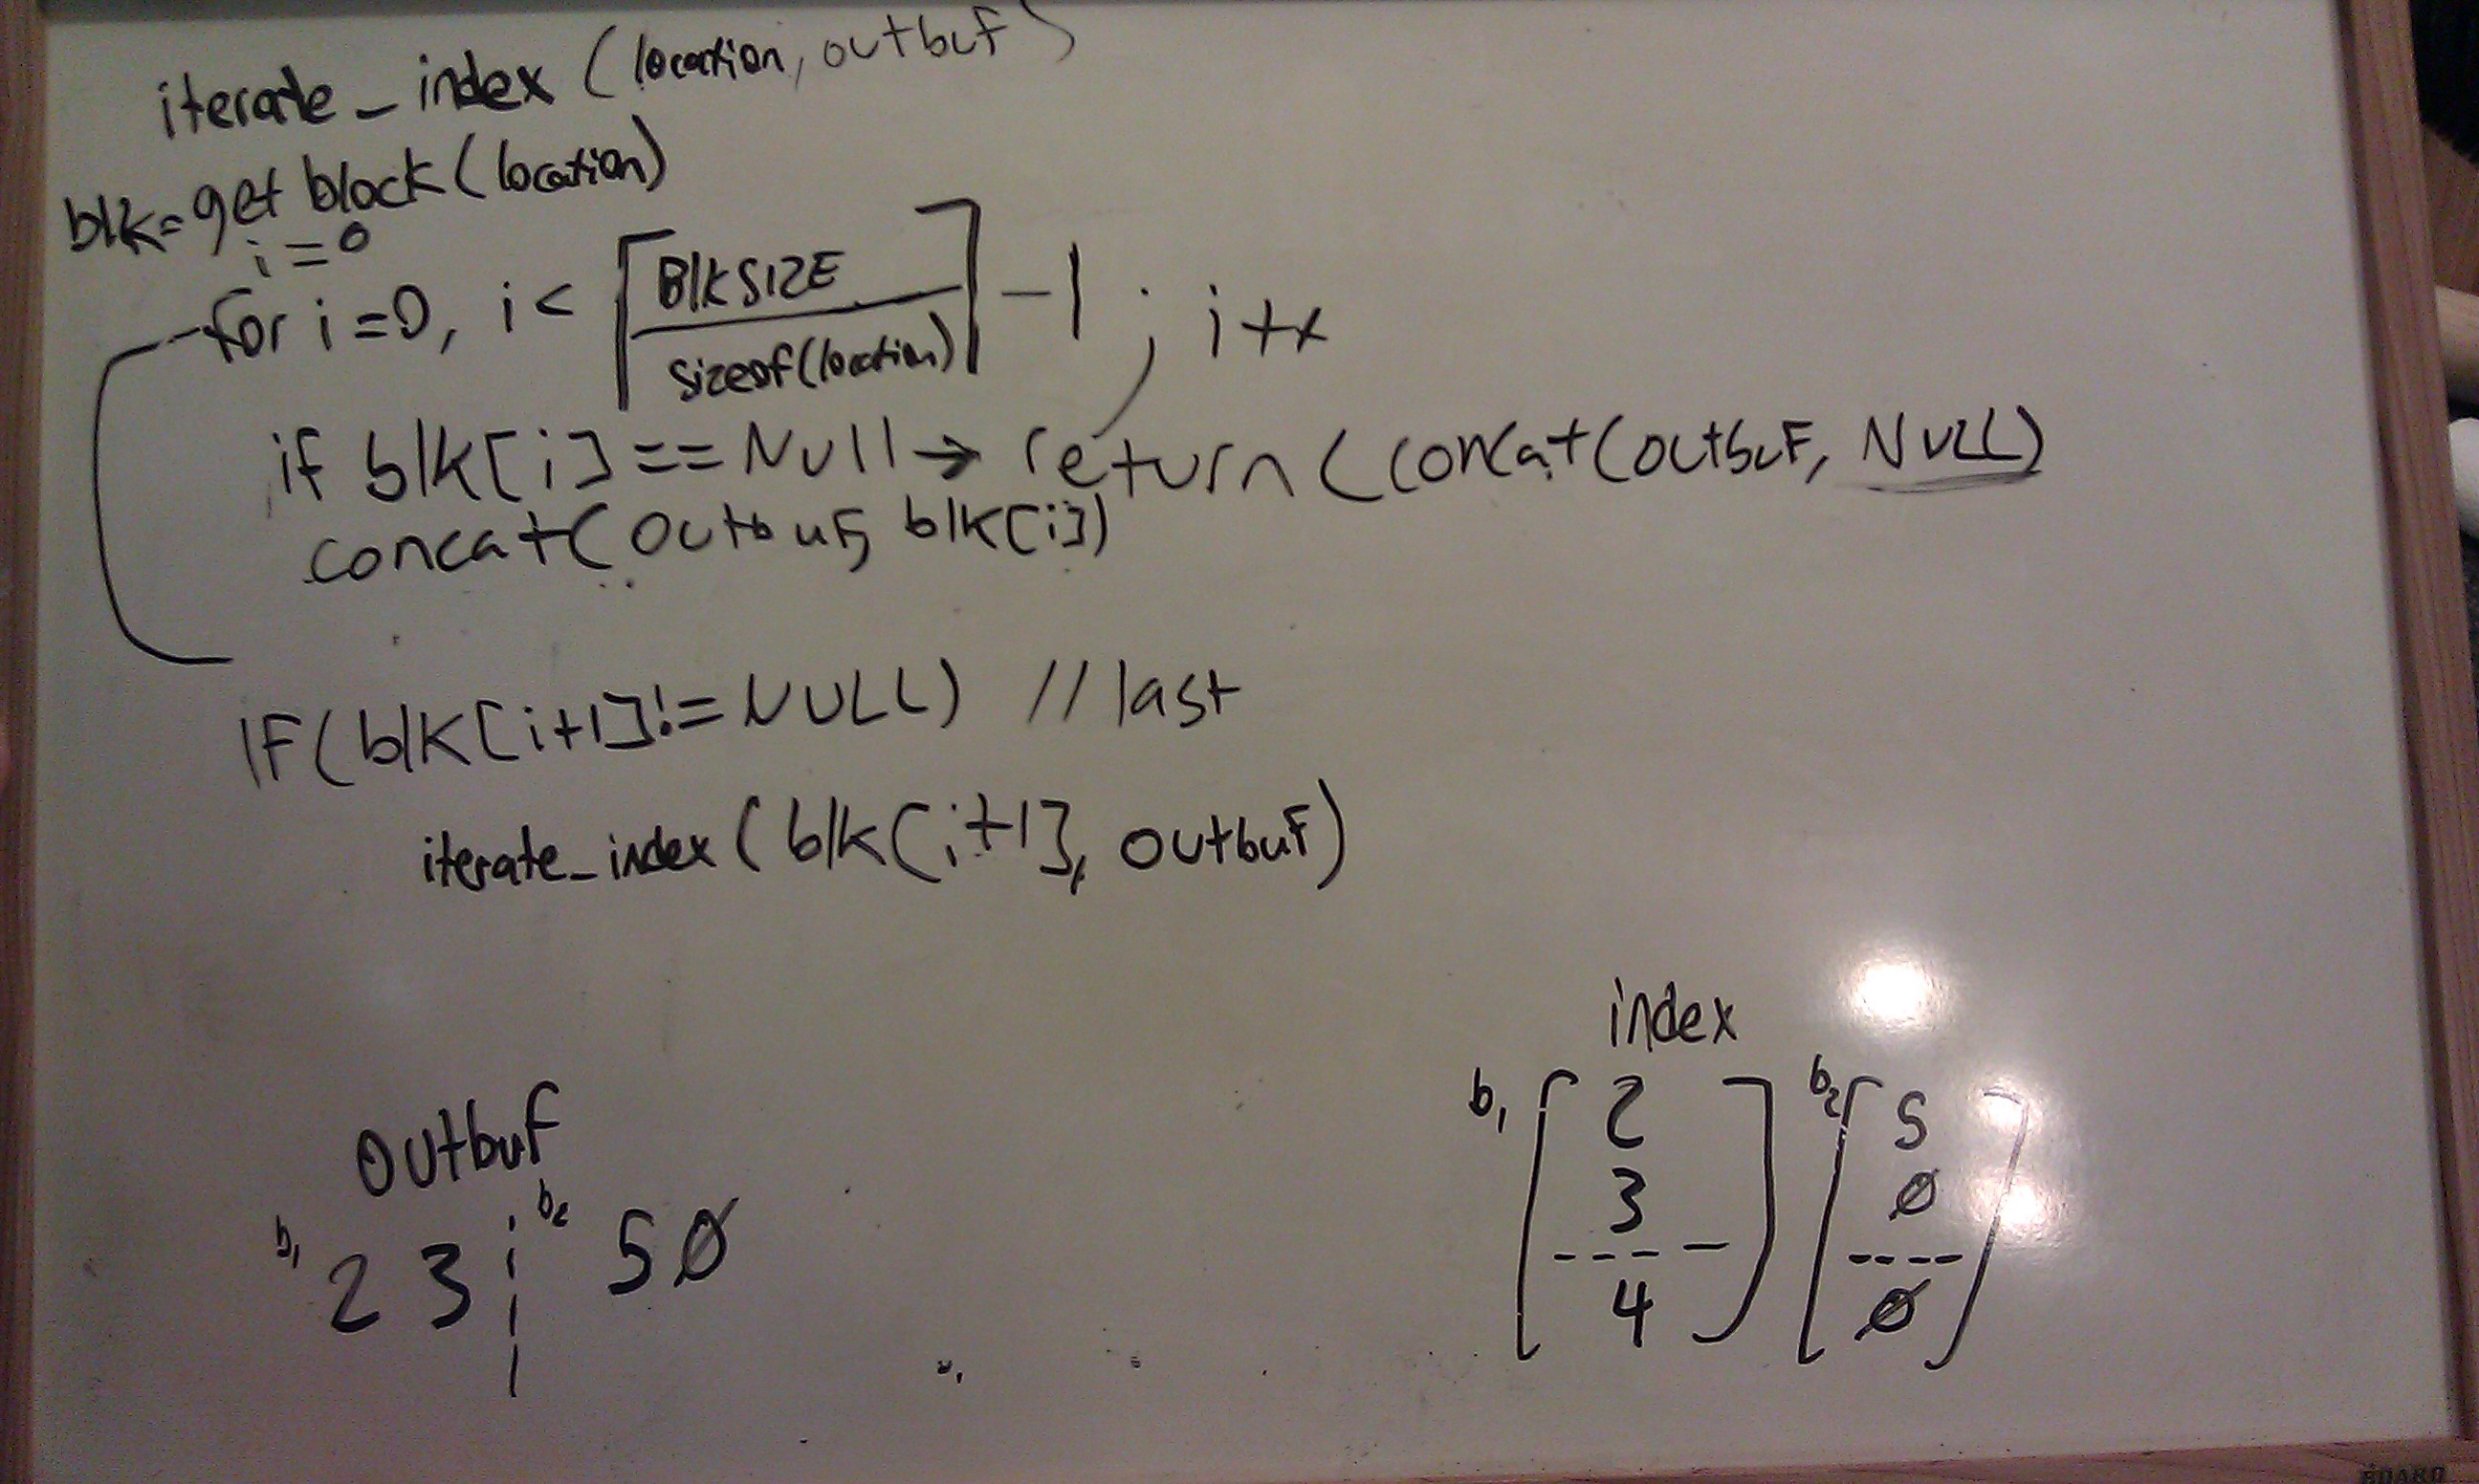 iterate_index (location, outbuf)
blk=get block (location)
i=0
for i=0, i< ⌈BlkSIZE / sizeof(location)⌉ -1 ; i++
if blk[i]==Null → return (concat(outbuf, NULL)
concat(outbuf, blk[i])
IF(blk[i+1]!=NULL) // last
iterate_index (blk[i+1], outbuf)
index
b1 [ 2 3 ---- 4 ] b2 [ 5 ∅ ---- ∅ ]
outbuf
b1 2 3 ¦ b2 5 ∅
BOARD